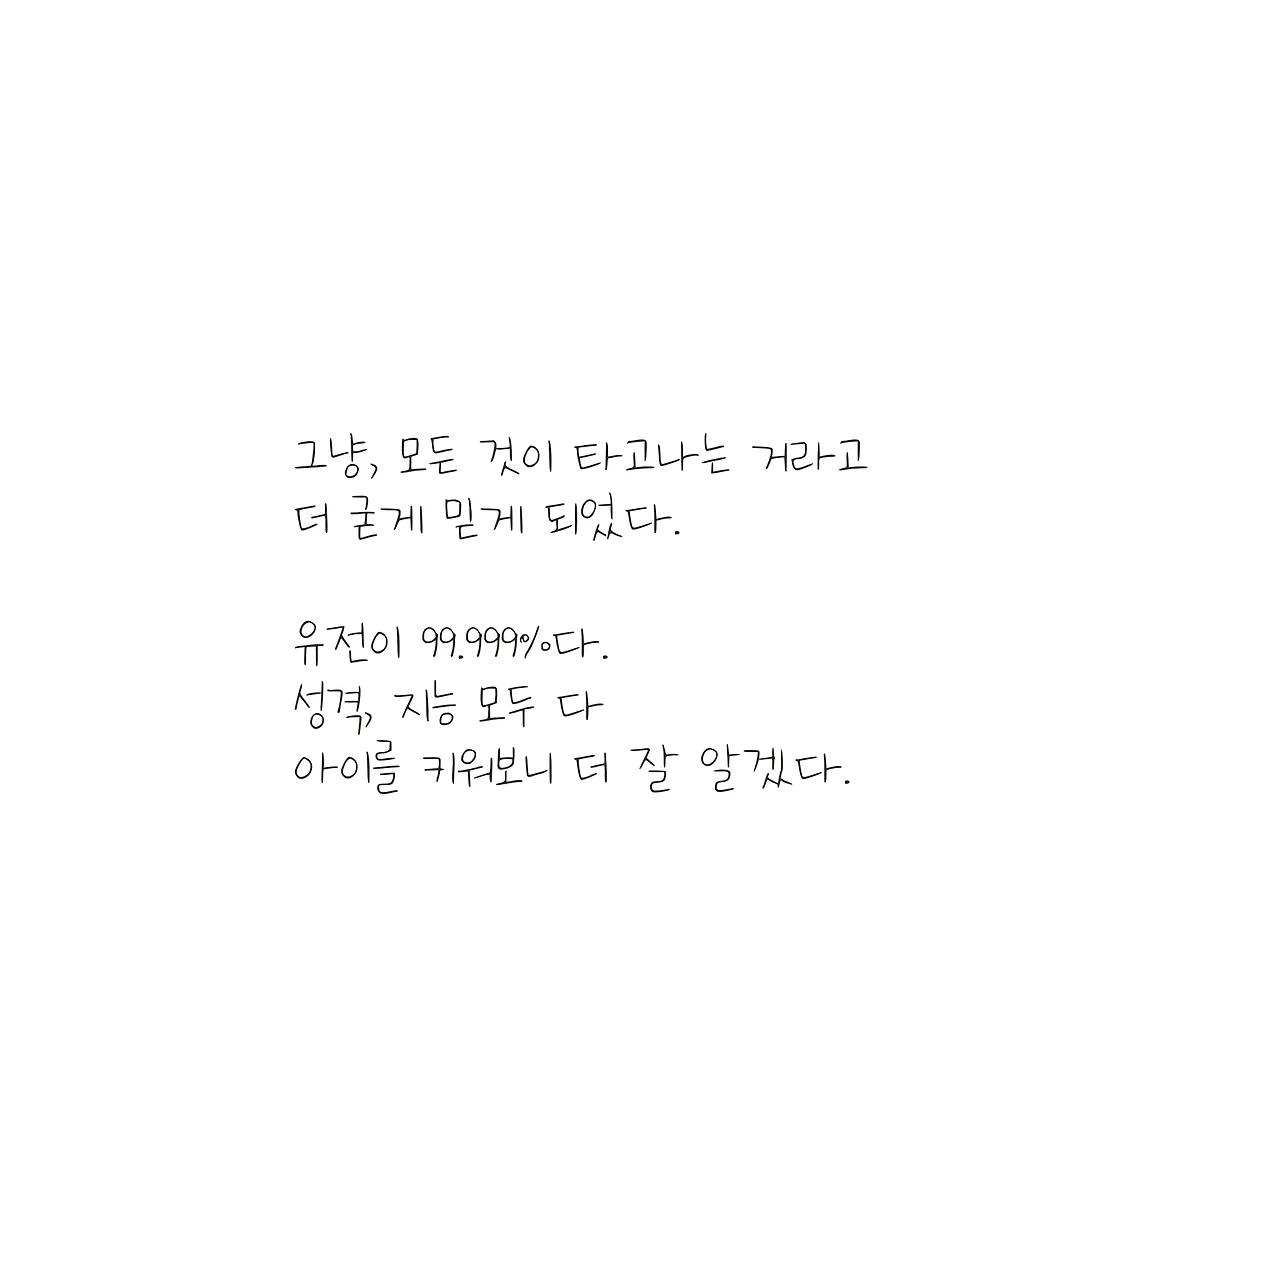 그냥, 모든 것이 타고나는 거라고
더 굳게 믿게 되었다.
유전이 99.999%다.
성격, 지능 모두 다
아이를 키워보니 더 잘 알겠다.